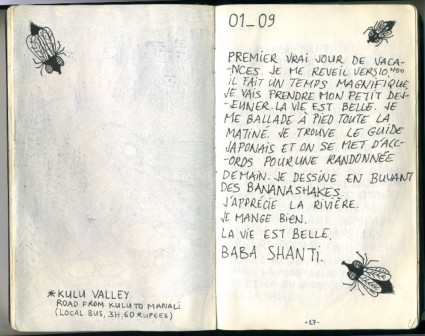 *KULU VALLEY
ROAD FROM KULU TO MANALI
(LOCAL BUS, 3H, 60 RUPEES)
01_09
PREMIER VRAI JOUR DE VACA-
-NCES. JE ME REVEIL VERS 10,400
IL FAIT UN TEMPS MAGNIFIQUE,
JE VAIS PRENDRE MON PETIT DEJ-
-EUNER. LA VIE EST BELLE. JE
ME BALLADE À PIED TOUTE LA
MATINÉ. JE TROUVE LE GUIDE
JAPONAIS ET ON SE MET D'ACC-
-ORDS POUR UNE RANDONNÉE
DEMAIN. JE DESSINE EN BUVANT
DES BANANASHAKES.
J'APPRÉCIE LA RIVIÈRE.
JE MANGE BIEN.
LA VIE EST BELLE,
BABA SHANTI.
-17-